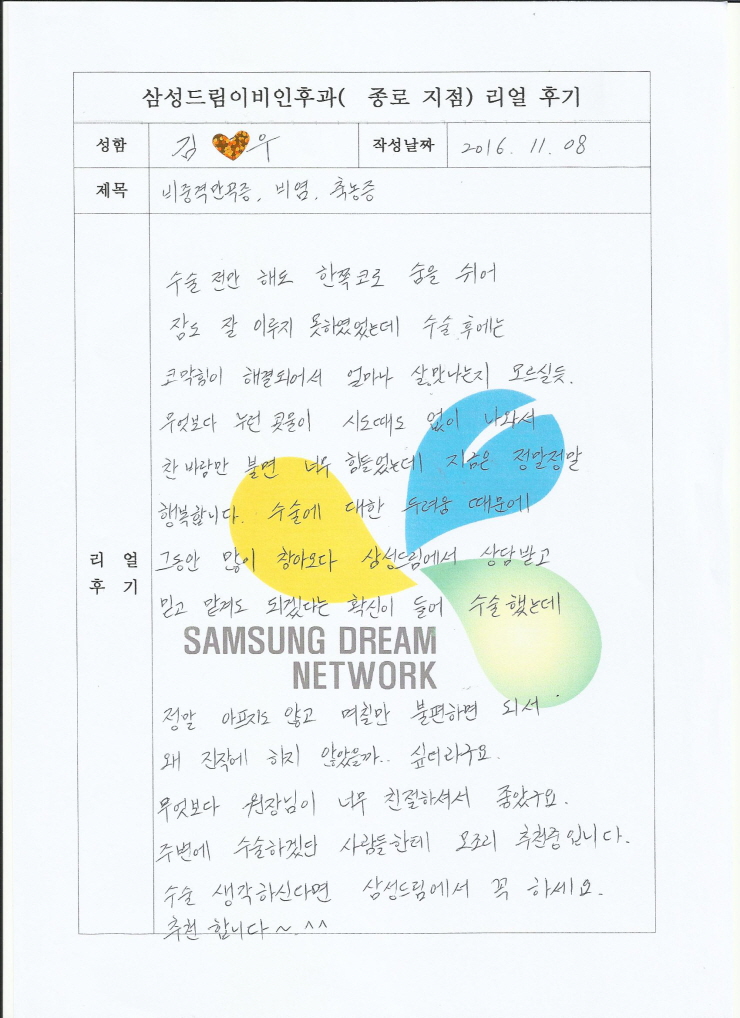 삼성드림이비인후과( 종로 지점) 리얼 후기
성함 김 우 작성날짜 2016. 11. 08
제목 비중격만곡증, 비염, 축농증
수술 전만 해도 한쪽코로 숨을 쉬어
잠도 잘 이루지 못하였었는데 수술 후에는
코막힘이 해결되어서 얼마나 살맛나는지 모르실듯.
무엇보다 누런 콧물이 시도때도 없이 나와서
찬 바람만 불면 너무 힘들었는데 지금은 정말정말
행복합니다. 수술에 대한 두려움 때문에
리 얼 후 기
그동안 많이 참아오다 삼성드림에서 상담받고
믿고 맡겨도 되겠다는 확신이 들어 수술했는데
SAMSUNG DREAM
NETWORK
정말 아프지도 않고 며칠만 불편하면 되서
왜 진작에 하지 않았을까.. 싶더라구요.
무엇보다 원장님이 너무 친절하셔서 좋았구요.
주변에 수술하겠단 사람들한테 모조리 추천중입니다.
수술 생각하신다면 삼성드림에서 꼭 하세요.
추천 합니다~.^^